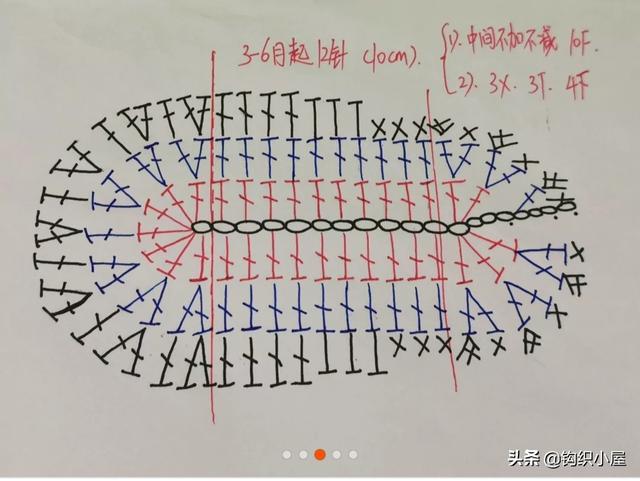 3-6月起12针 (10cm).
1). 中间不加不减 10F.
2). 3X. 3T. 4F
头条 @钩织小屋